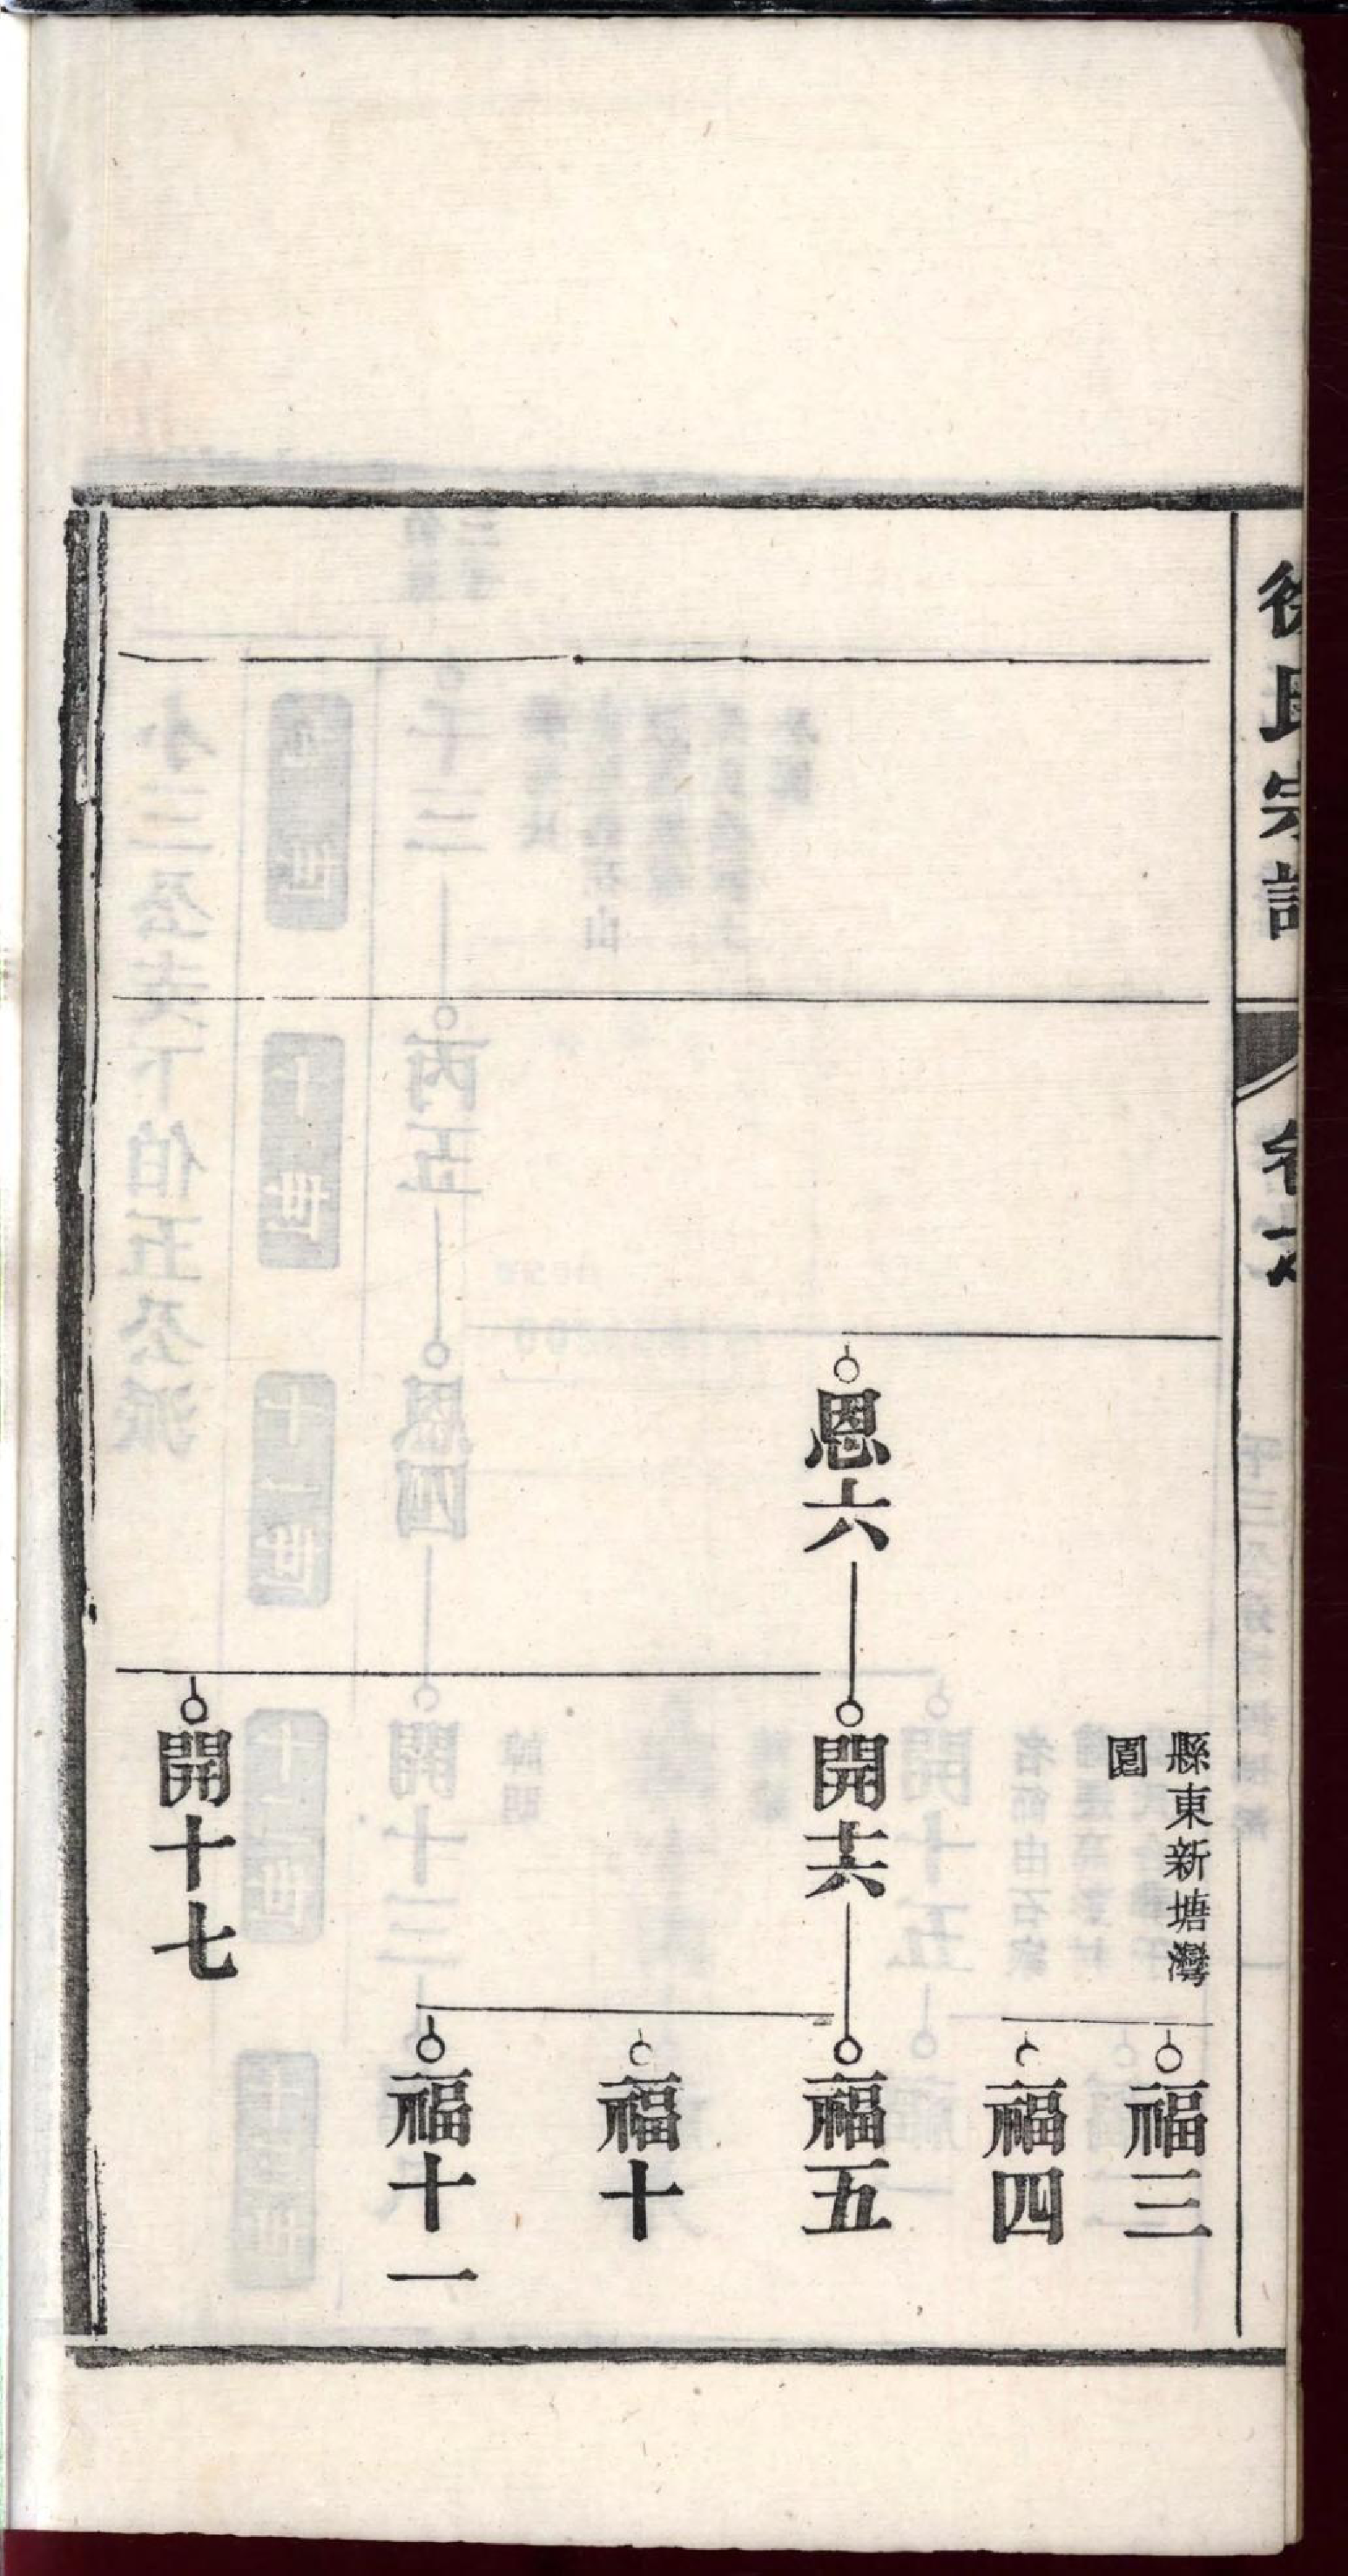 徐氏宗譜
卷
縣東新塘灣
園
福三
福四
恩六
開十六
福五
福十
福十一
開十七